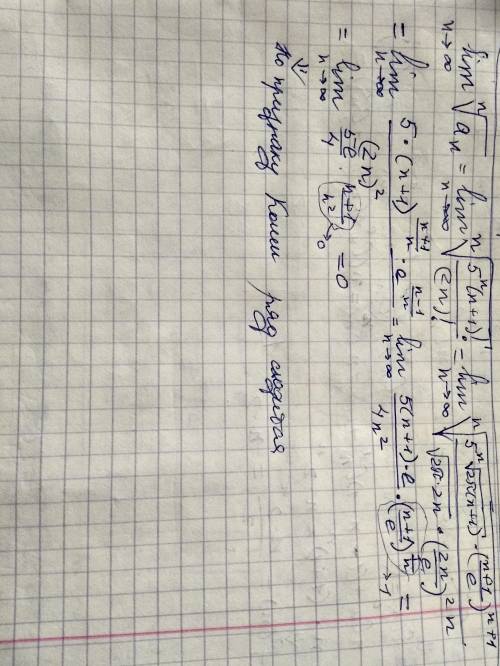 lim_{n→∞} ⁿ√(aₙ) = lim_{n→∞} ⁿ√(5ⁿ(n+1)! / (2n)!) = lim_{n→∞} ⁿ√(5ⁿ√(2π(n+1)) · ((n+1)/e)^{n+1} / (√(2π·2n) · (2n/e)^{2n}))
= lim_{n→∞} (5·(n+1)^{(n+1)/n} · e^{(n-1)/n}) / (2n)² = lim_{n→∞} (5(n+1)·e / 4n²) · ((n+1)/e)^{1/n} → 1 =
= lim_{n→∞} 5e/4 · (n+1)/n² → 0 = 0
⇓
По признаку Коши ряд сходится